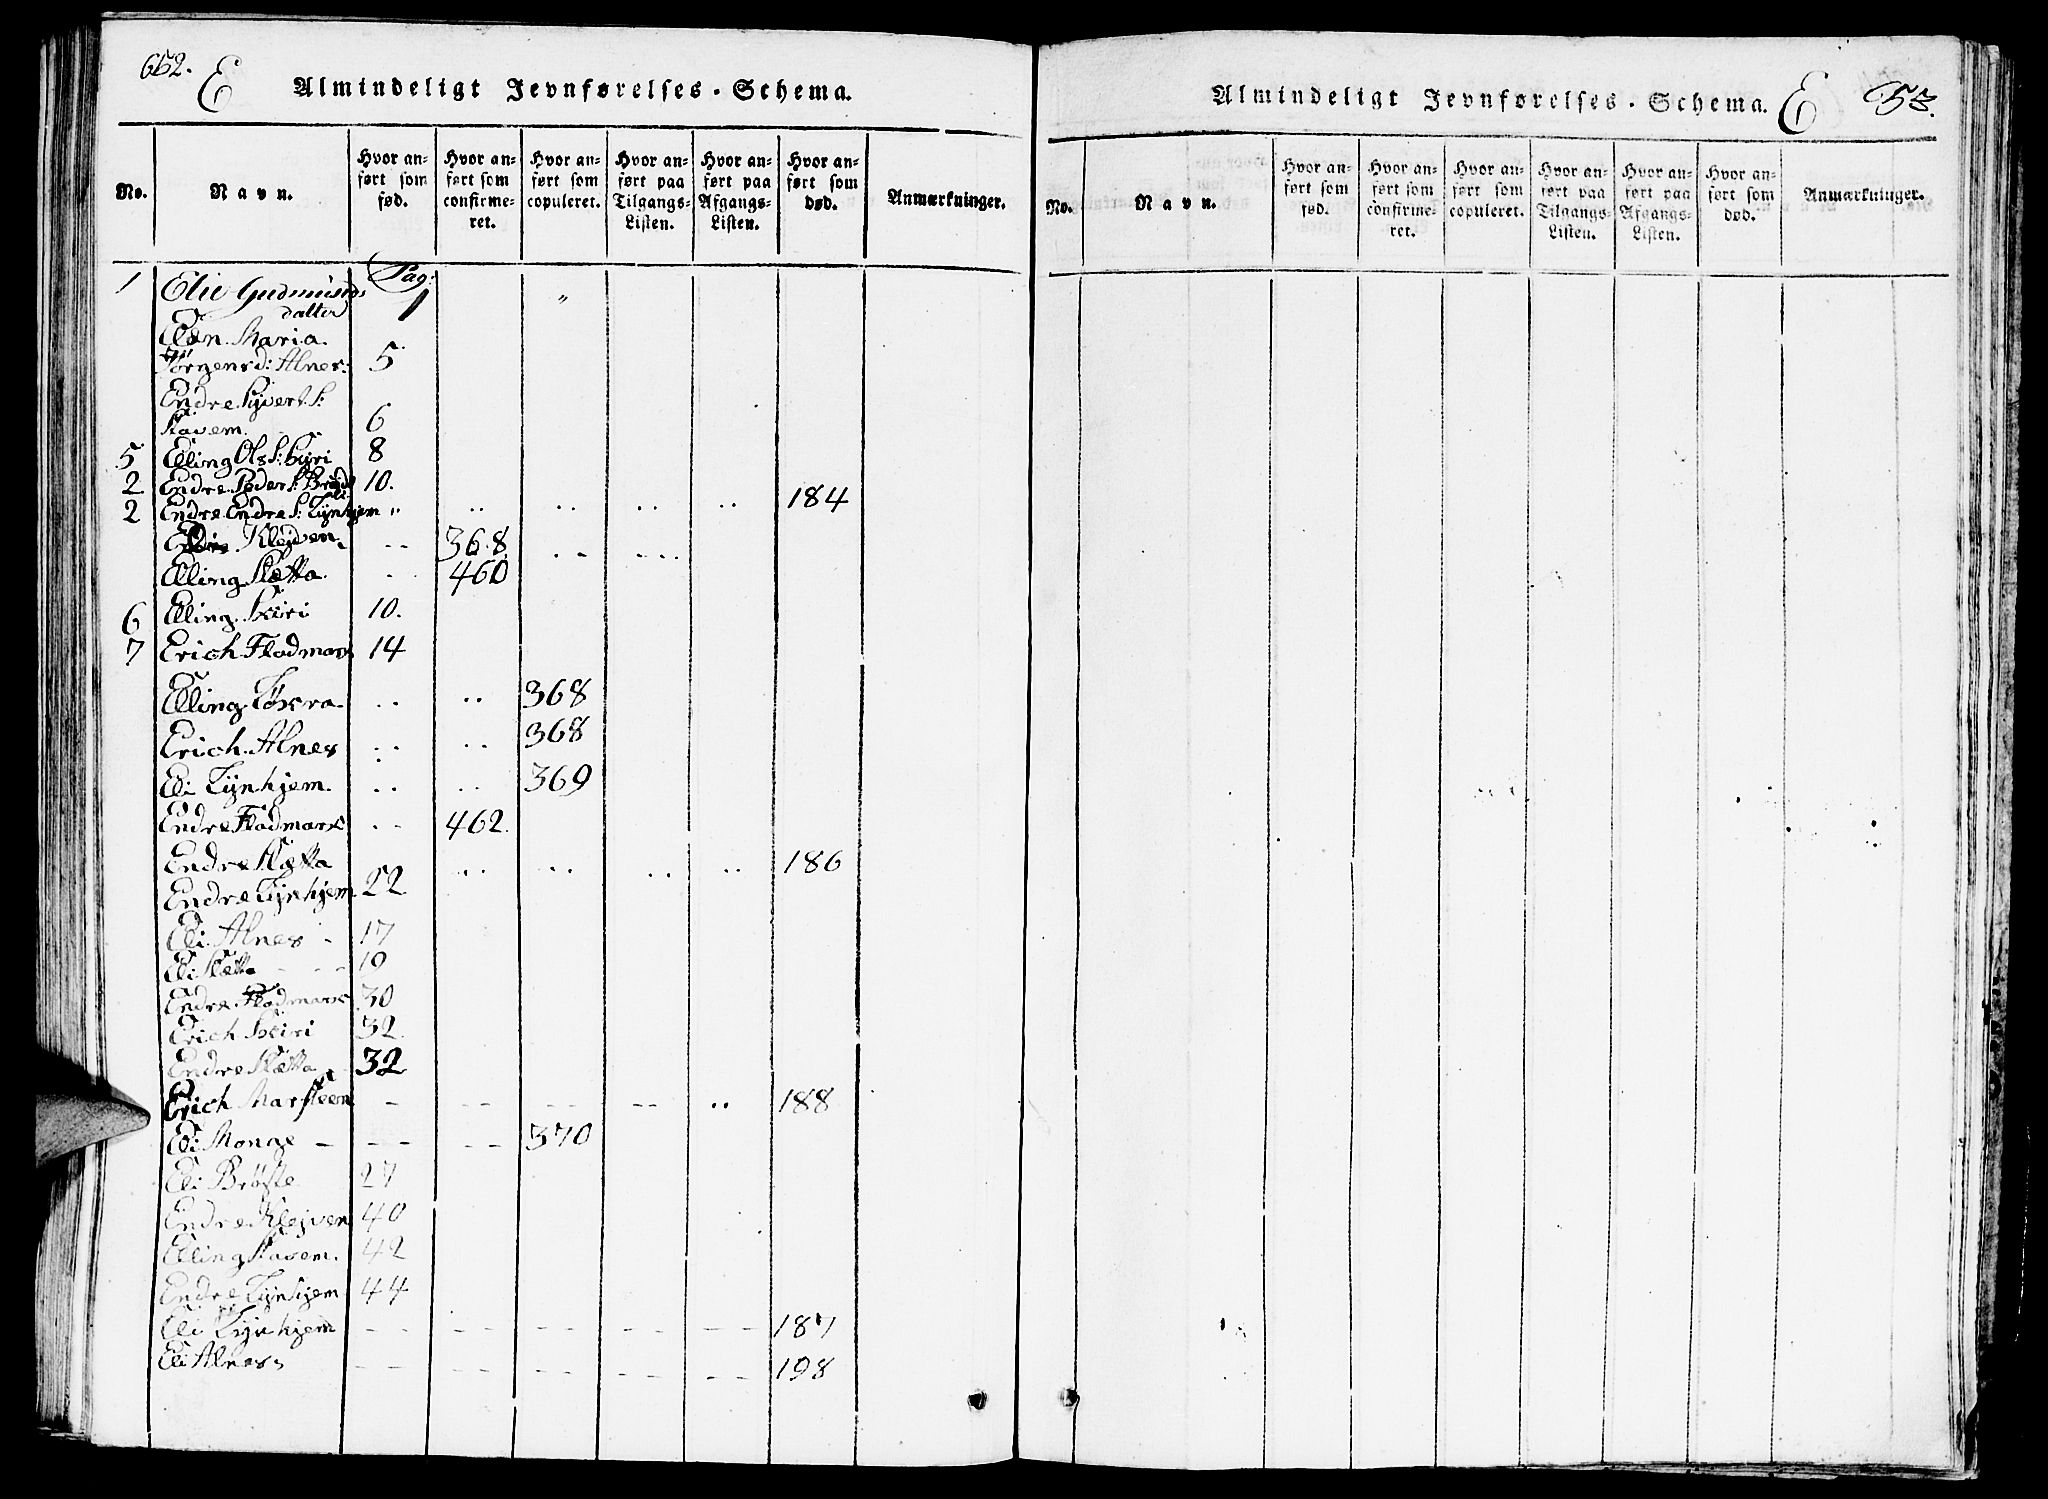 652.
E
Almindeligt Jevnførelses-Schema.
No. Navn. Hvor anført som fød. Hvor anført som confirmeret. Hvor anført som copuleret. Hvor anført paa Tilgangs-Listen. Hvor anført paa Afgangs-Listen. Hvor anført som død. Anmærkninger.
Pag:
1 Elie Gudmunds 1 "
datter
Elen Maria
Jørgensd: Alnes: 5
Endre Syvert S:
Stavem 6
5 Elling Ols S: Skiri 8
2 Endre Peder S: Brøste 10.
2 Endre Endre S: Lynhjem " .. .. .. .. 184
Kleiven -- 368. .. ...
Elling Slætta .. 460
6 Elling Skiri 10.
7 Erich Flodmark 14
Elling Løkra .. .. 368
Erich Alnes .. .. 368
Eli Lynhjem .. .. 369
Endre Flodmark .. 462.
Endre Slætta .. .. .. .. 186
Endre Lynhjem 22
Eli Alnes - 17
Eli Slætta - - - 19
Endre Flodmark 30
Erich Skiri 32
Endre Slætta - 32
Erich Marsteen - -- -- -- .. 188
Eli Monge - -- -- 370
Eli Brøste 27
Endre Kleiven 40
Elling Stavem. 42
Endre Lynhjem 44
Eli Lynhjem -- -- -- -- -- 187
Eli Alnes -- -- -- -- -- 198
Almindeligt Jevnførelses-Schema.
E
53.
No. Navn. Hvor anført som fød. Hvor anført som confirmeret. Hvor anført som copuleret. Hvor anført paa Tilgangs-Listen. Hvor anført paa Afgangs-Listen. Hvor anført som død. Anmærkninger.